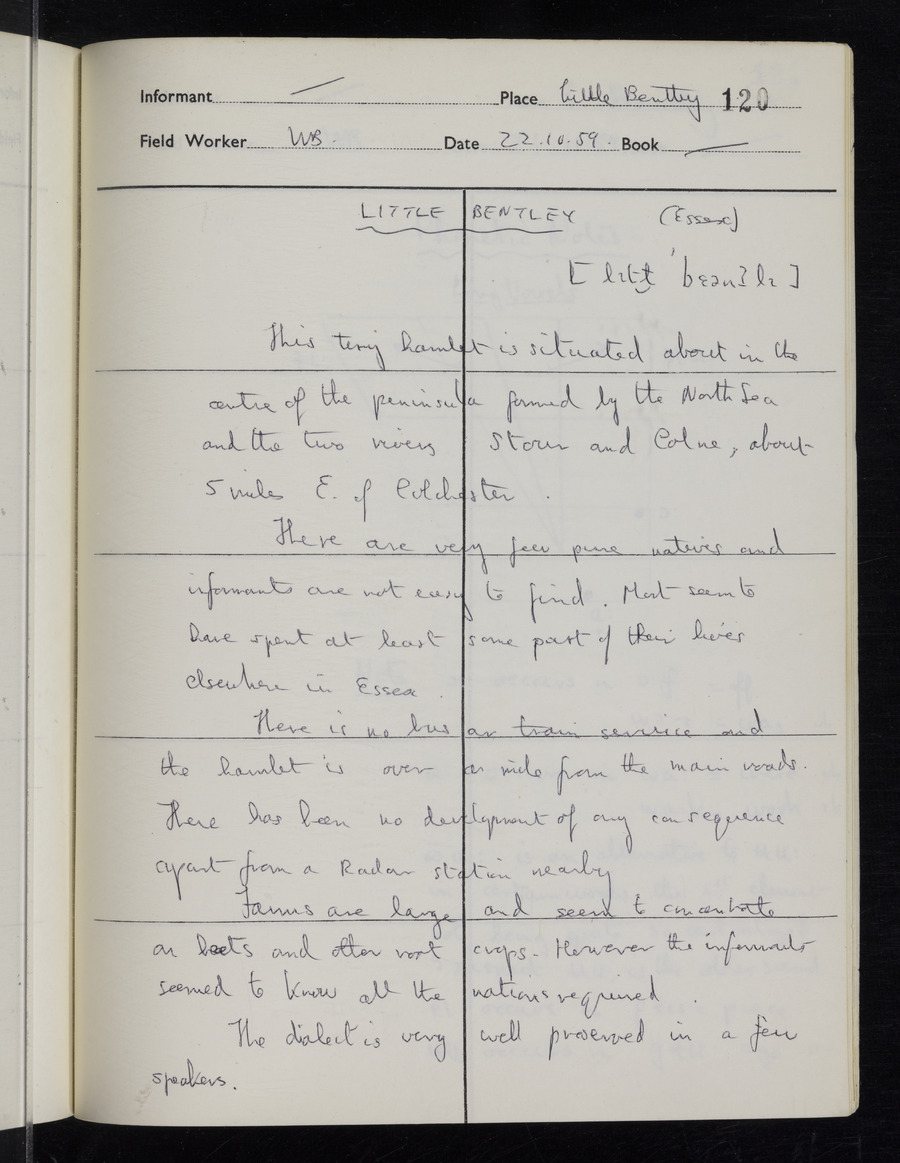 Informant — Place Little Bentley 120
Field Worker WB. Date 22.10.59. Book —
LITTLE BENTLEY (Essex)
This tiny hamlet is situated about in the
centre of the peninsula formed by the North Sea
and the two rivers Stour and Colne, about
5 miles E. of Colchester.
There are very few pure natives and
informants are not easy to find. Most seem to
have spent at least some part of their lives
elsewhere in Essex.
There is no bus or train service and
the hamlet is over a mile from the main roads.
There has been no development of any consequence
apart from a Radar station nearby
Farms are large and seem to concentrate
on beets and other root crops. However the informants
seemed to know all the notions required.
The dialect is very well preserved in a few
speakers.